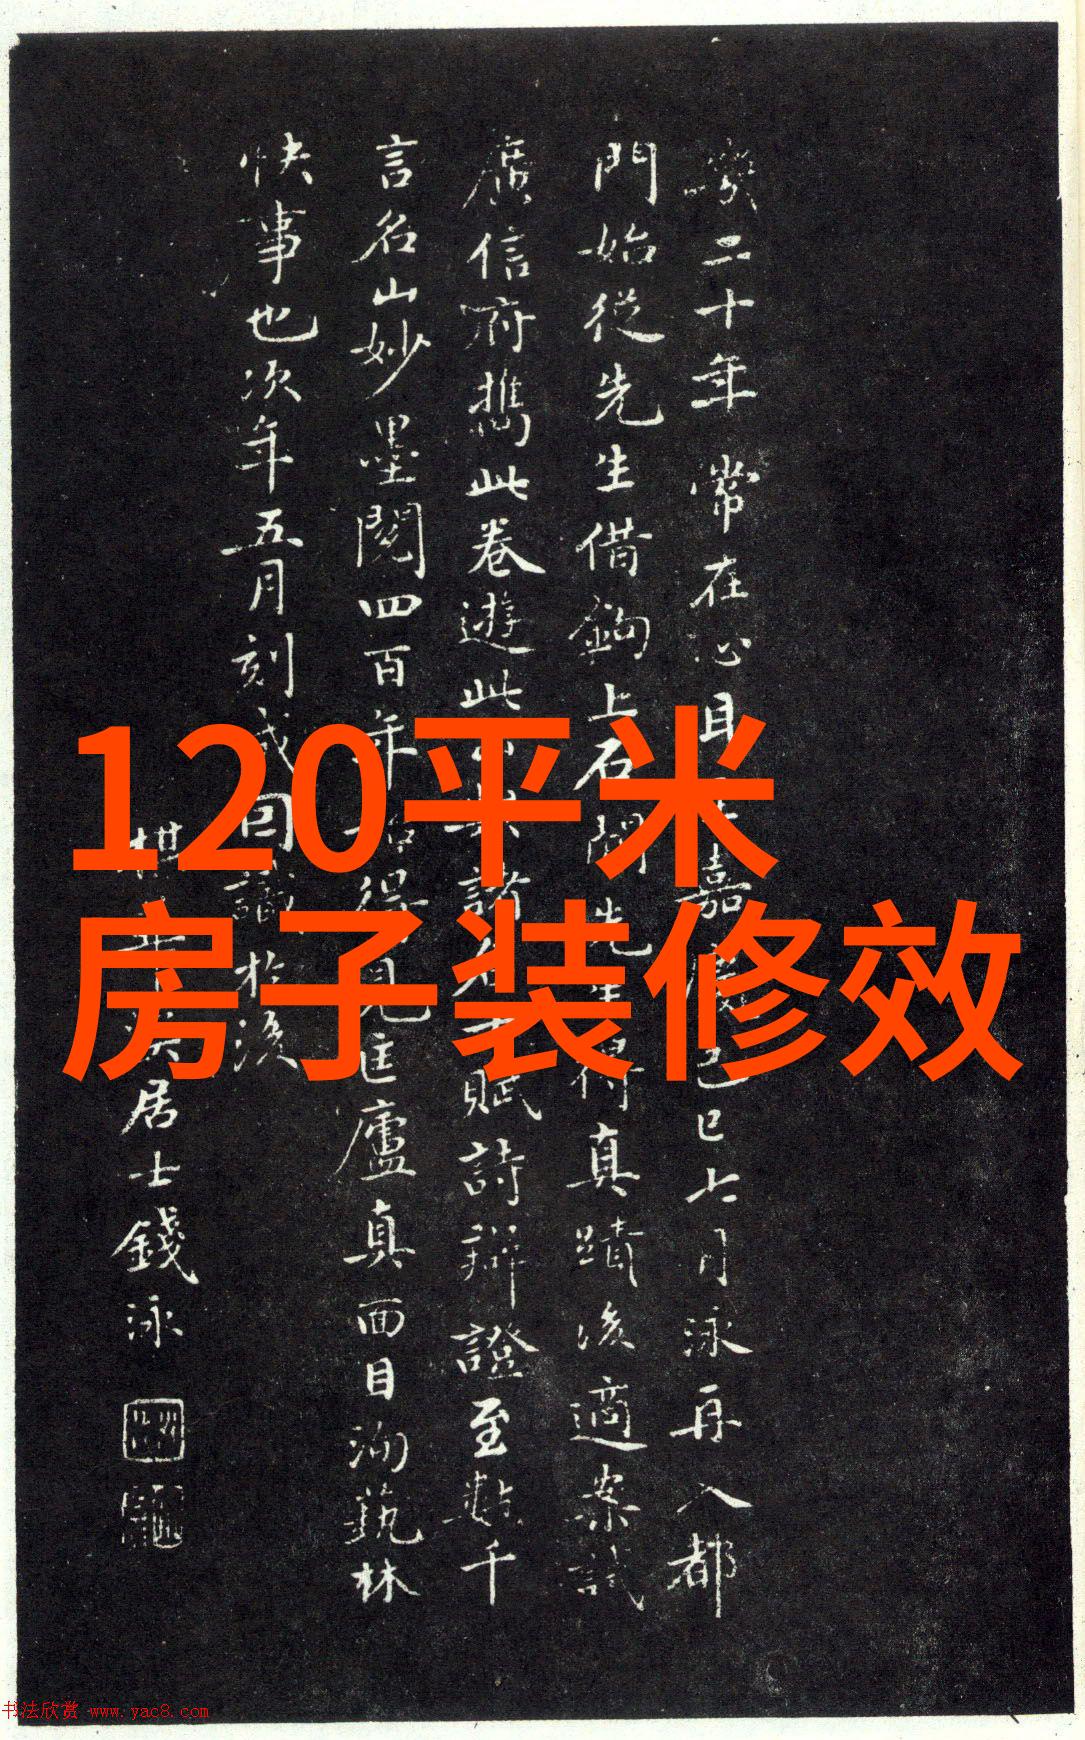 幾二十年常在心目
嘉慶己巳七月泳再入都
門始從先生借鉤上石
閣先生得真蹟後適秦試
廣信府攜此卷遊此山
諸
賦詩辯證至數千
言名山妙墨閱四百年
得見匡廬真面目洵藝林
快事也次年五月刻成回識於後
梅華溪居士錢泳
120平米
房子装修效
书法欣赏 www.yac8.com